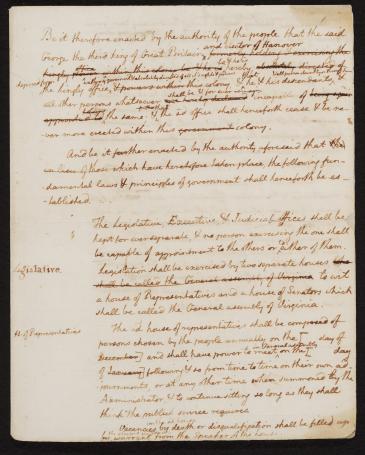 Be it therefore enacted by the authority of the people that the said
George the third king of Great Britain and elector of Hanover
be & he is hereby deposed from
the kingly office within this colony
the kingly office, & that he & his descendants, &
all other persons whatsoever shall be & are hereby declared incapable of
the same; & the sd office shall henceforth cease & be ne-
ver more erected within this government colony.
And be it further enacted by the authority aforesaid that the
in lieu of those which have heretofore taken place, the following fun-
damental laws & principles of government shall henceforth be es-
tablished.
The Legislative, Executive, & Judiciary offices shall be
kept for ever separate, & no person exercising the one shall
be capable of appointment to the others or either of them.
Legislative.
Legislation shall be exercised by two separate houses who
shall be called the General assembly of Virginia to wit
a house of Representatives and a house of Senators which
shall be called the General assembly of Virginia.
Ho. of Representatives
The sd house of representatives shall be composed of
persons chosen by the people annually on the [ day of
December] and shall have power to meet in General assembly on the [ day
of January] following & so from time to time on their own ad-
journments, or at any other time when summoned by the
Administrator, & to continue sitting so long as they shall
think the public service requires.
Vacancies by death or disqualification shall be filled up
warrant from the Speaker of the house